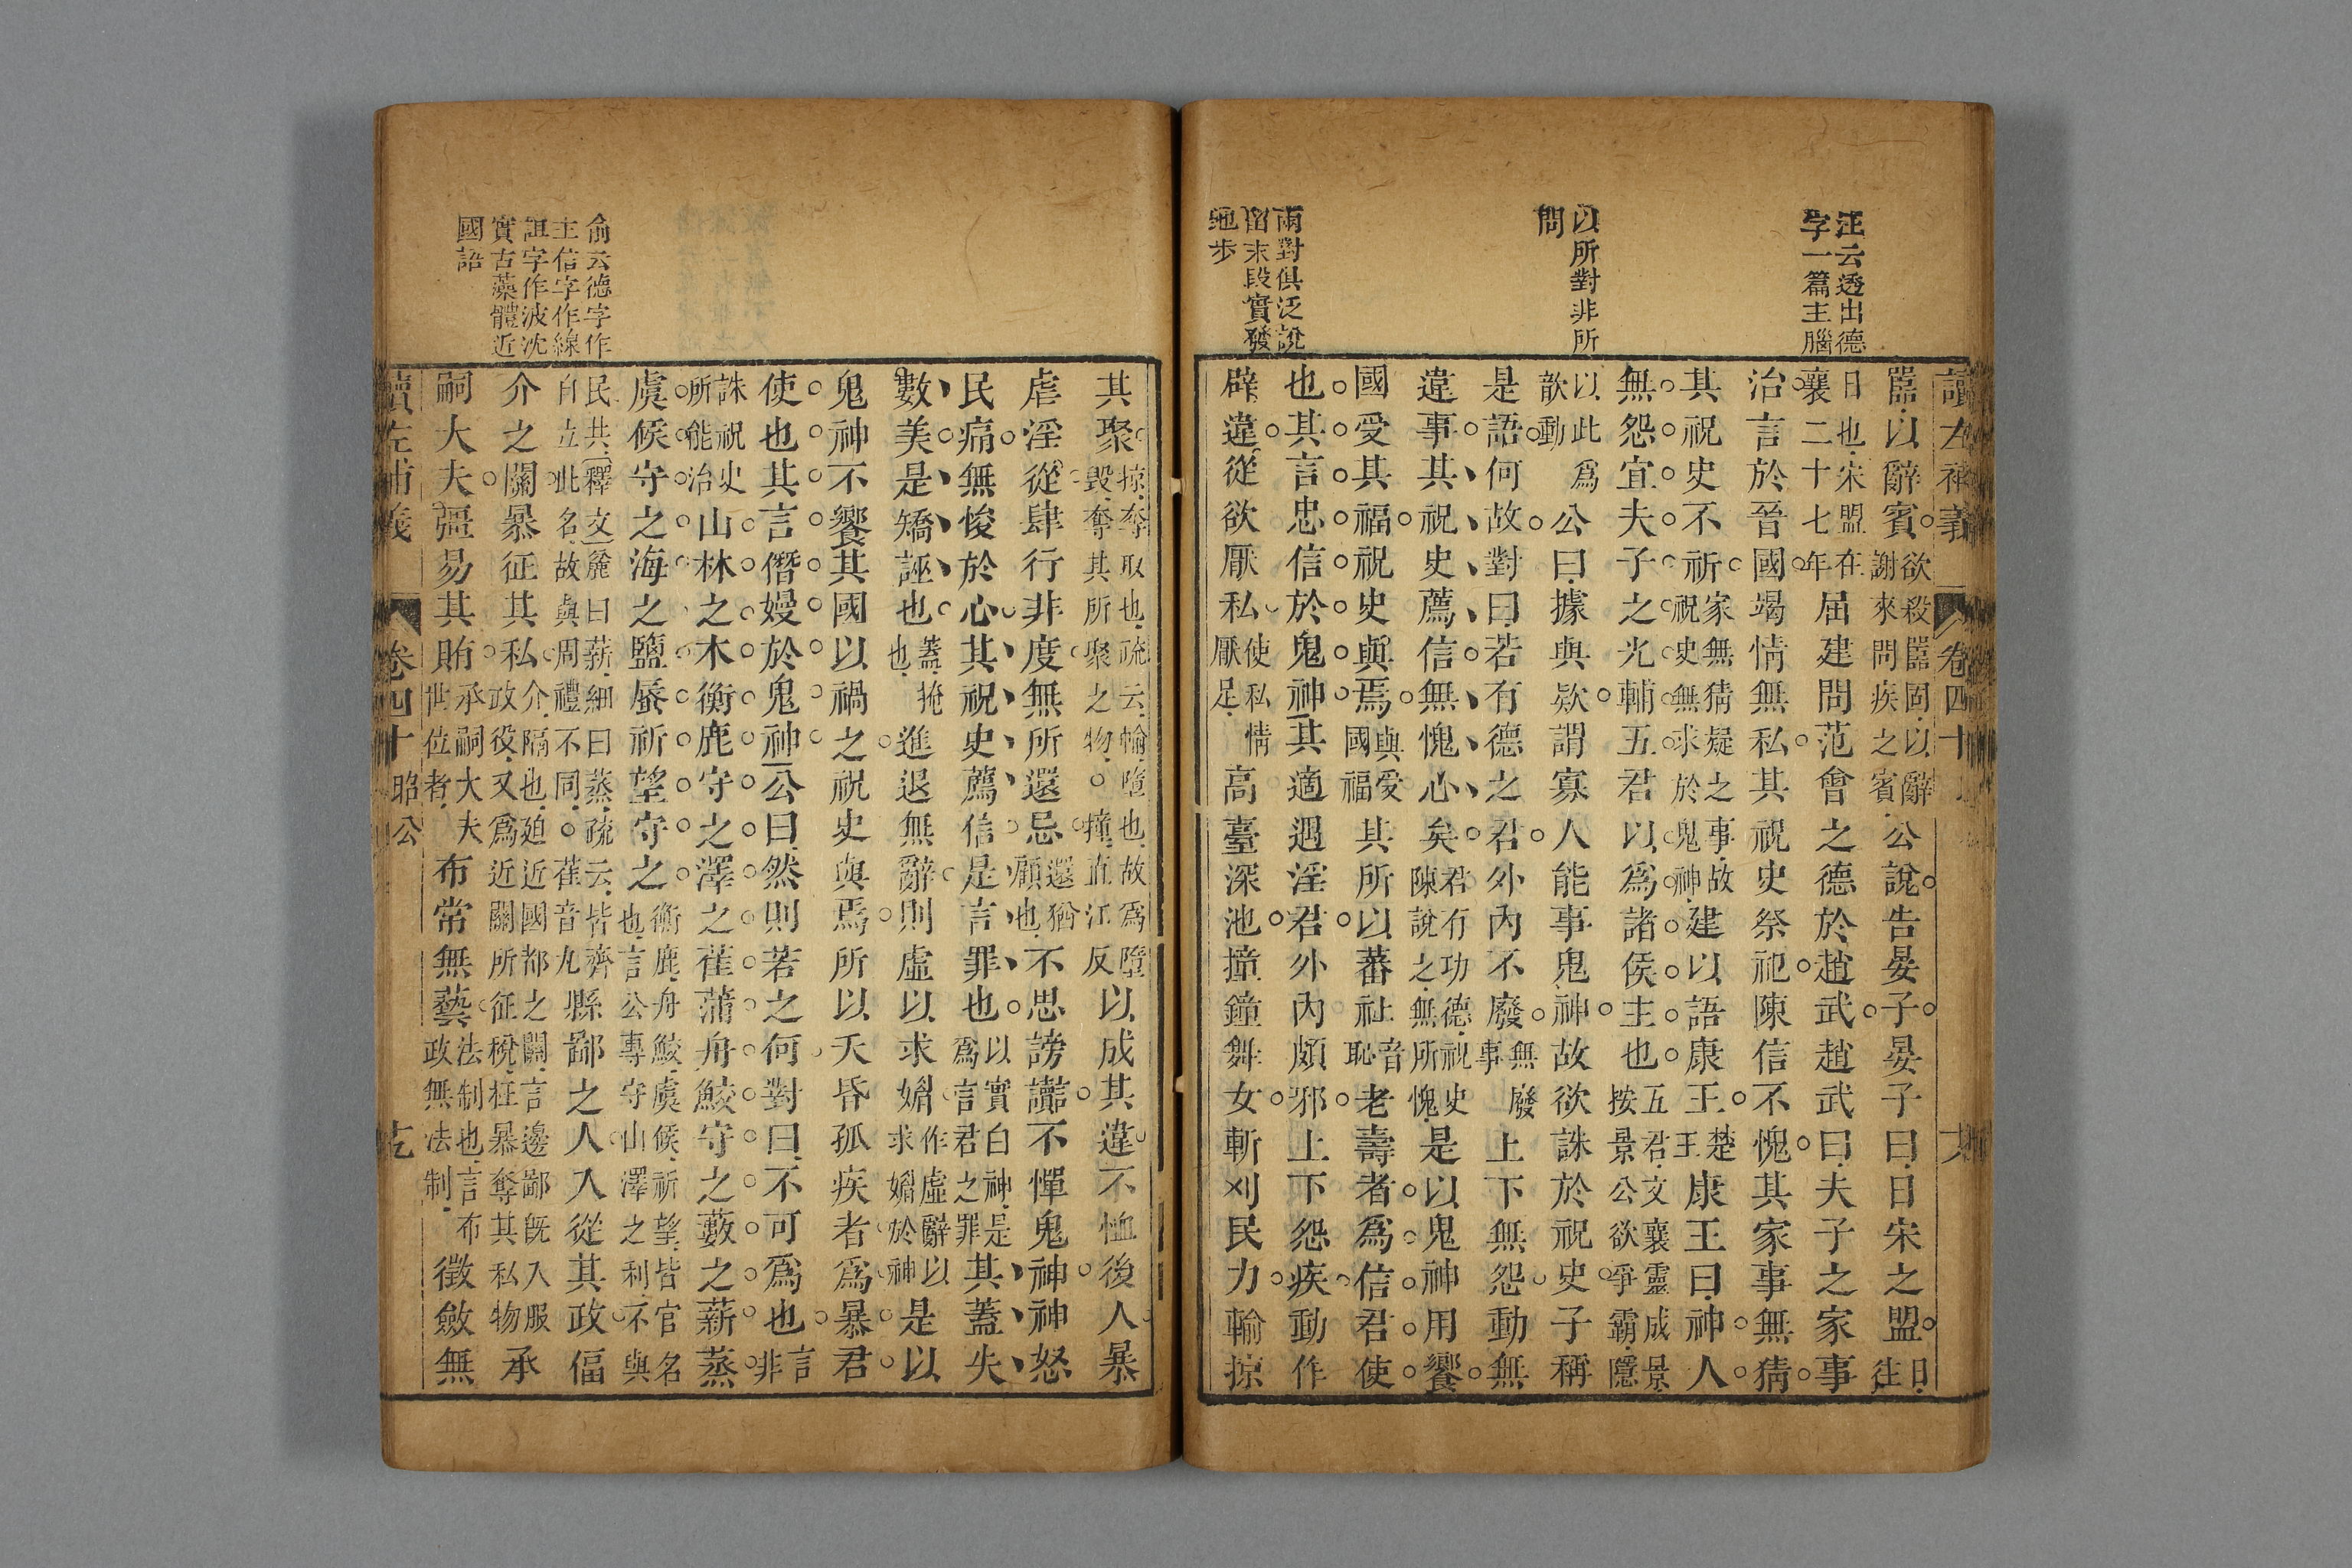 汪云透出德
字一篇主腦
以所對非所
問
兩對俱泛說
留末段實發
地步
讀左補義 卷四十
嚚以辭賓欲殺嚚固以辭謝來問疾之賓公說告晏子晏子曰日宋之盟日往
日也宋盟在襄二十七年屈建問范會之德於趙武趙武曰夫子之家事
治言於晉國竭情無私其祝史祭祀陳信不愧其家事無猜
其祝史不祈家無猜疑之事故祝史無求於鬼神建以語康王楚王康王曰神人
無怨宜夫子之光輔五君以為諸侯主也五君文襄靈成景按景公欲爭霸隱
以此為歆動公曰據與欵謂寡人能事鬼神故欲誅於祝史子稱
是語何故對曰若有德之君外內不廢無廢事上下無怨動無
違事其祝史薦信無愧心矣君有功德祝史陳說之無所愧是以鬼神用饗
國受其福祝史與焉與受國福其所以蕃祉音恥老壽者為信君使
也其言忠信於鬼神其適遇淫君外內頗邪上下怨疾動作
辟違從欲厭私使私情厭足高臺深池撞鐘舞女斬刈民力輸掠
俞云德字作
主信字作線
詛字作波沈
實古藻體近
國語
其聚掠奪取也疏云輸墮也故為墮毀奪其所聚之物○撞直江反以成其違不恤後人暴
虐淫從肆行非度無所還忌還猶顧也不思謗讟不憚鬼神神怒
民痛無悛於心其祝史薦信是言罪也以實白神是為言君之罪其蓋失
數美是矯誣也蓋掩也進退無辭則虛以求媚作虛辭以求媚於神是以
鬼神不饗其國以禍之祝史與焉所以夭昏孤疾者為暴君
使也其言僭嫚於鬼神公曰然則若之何對曰不可為也言非
誅祝史所能治山林之木衡鹿守之澤之萑蒲舟鮫守之藪之薪蒸
虞候守之海之鹽蜃祈望守之衡鹿舟鮫虞候祈望皆官名也言公專守山澤之利不與
民共釋文麄曰薪細曰蒸疏云皆齊自立此名故與周禮不同○萑音九縣鄙之人入從其政偪
介之關暴征其私介隔也迫近國都之關言邊鄙既入服政役又為近關所征稅枉暴奪其私物承
嗣大夫彊易其賄承嗣大夫世位者布常無藝法制也言布政無法制徵斂無
讀左補義 卷四十 昭公